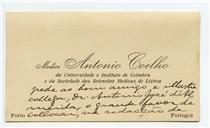 Medico Antonio Coelho
da Universidade e Instituto de Coimbra
e da Sociedade das Sciencias Medicas de Lisboa
pede ao bom amigo e illustre
collega, Dr. Antonio José d'Al
meida, o grande favor de
collocar, na redacção da
Porto Portugal